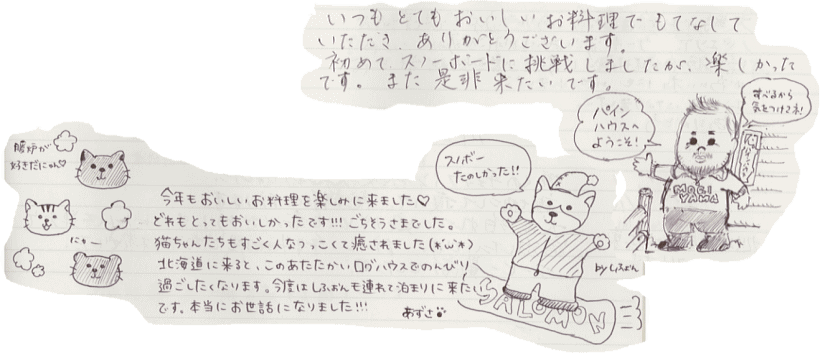 いつもとてもおいしいお料理でもてなして
いただき、ありがとうございます。
初めてスノーボードに挑戦しましたが、楽しかった
です。また是非来たいです。
パイン
ハウスへ
ようこそ!
すべるから
気をつけてネ!
MORI
YAMA
by しふぉん
暖炉が
好きだにゃん♡
にゃー
今年もおいしいお料理を楽しみに来ました♡
どれもとってもおいしかったです!!! ごちそうさまでした。
猫ちゃんたちもすごく人なつっこくて癒されました(*'ω'*)
北海道に来ると、このあたたかいログハウスでのんびり
過ごしたくなります。今度はしふぉんも連れて泊まりに来たい
です。本当にお世話になりました!!!
あずさ
スノボー
たのしかった!!
SALOMON